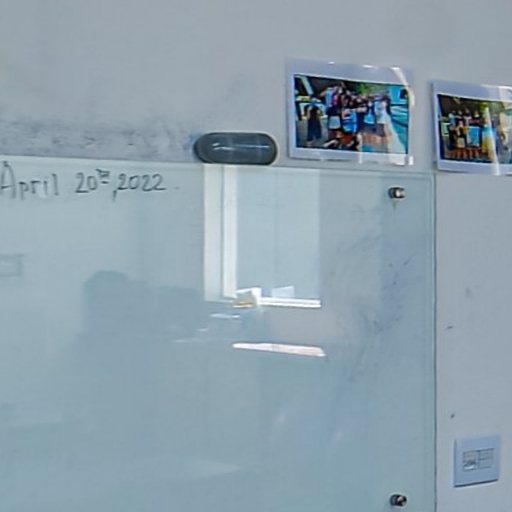 April 20th, 2022.